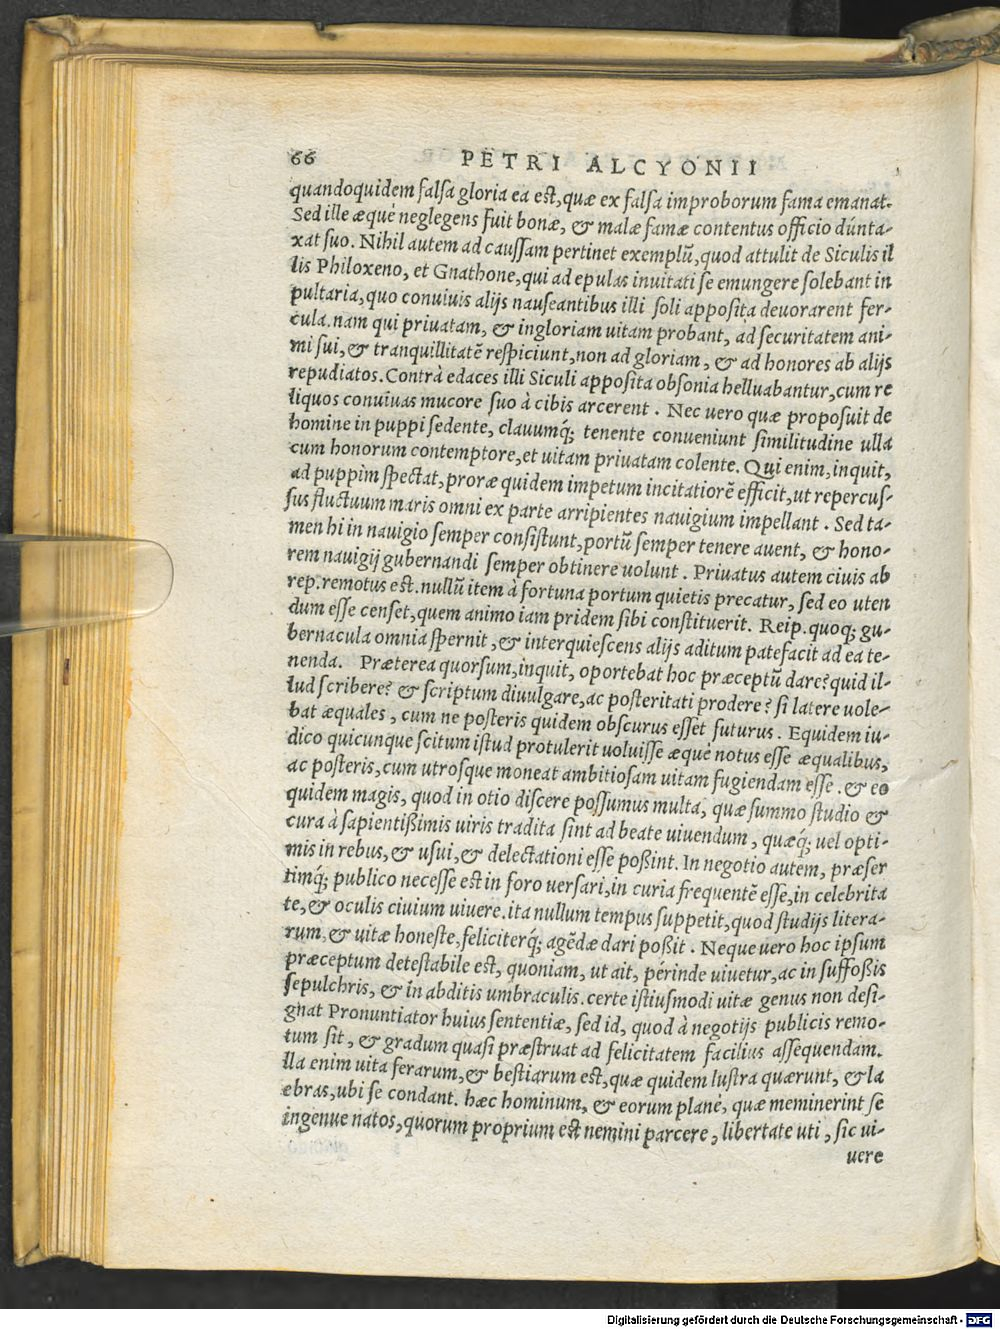 66 PETRI ALCYONII
quandoquidem falsa gloria ea est, quæ ex falsa improborum fama emanat.
Sed ille æquè neglegens fuit bonæ, & malæ famæ contentus officio dúnta-
xat suo. Nihil autem ad caussam pertinet exemplũ, quod attulit de Siculis il
lis Philoxeno, et Gnathone, qui ad epulas inuitati se emungere solebant in
pultaria, quo conuiuis alijs nauseantibus illi soli apposita deuorarent fer-
cula. nam qui priuatam, & ingloriam uitam probant, ad securitatem ani-
mi sui, & tranquillitatẽ respiciunt, non ad gloriam, & ad honores ab alijs
repudiatos. Contrà edaces illi Siculi apposita obsonia helluabantur, cum re
liquos conuiuas mucore suo à cibis arcerent. Nec uero quæ proposuit de
homine in puppi sedente, clauumq́; tenente conueniunt similitudine ulla
cum honorum contemptore, et uitam priuatam colente. Qui enim, inquit,
ad puppim spectat, proræ quidem impetum incitatiorẽ efficit, ut repercus-
sus fluctuum maris omni ex parte arripientes nauigium impellant. Sed ta-
men hi in nauigio semper consistunt, portũ semper tenere auent, & hono-
rem nauigij gubernandi semper obtinere uolunt. Priuatus autem ciuis ab
rep. remotus est. nullũ item à fortuna portum quietis precatur, sed eo uten
dum esse censet, quem animo iam pridem sibi constituerit. Reip. quoq; gu-
bernacula omnia spernit, & interquiescens alijs aditum patefacit ad ea te-
nenda. Præterea quorsum, inquit, oportebat hoc præceptũ dare? quid il-
lud scribere? & scriptum diuulgare, ac posteritati prodere? si latere uole-
bat æquales, cum ne posteris quidem obscurus esset futurus. Equidem iu-
dico quicunque scitum istud protulerit uoluisse æquè notus esse æqualibus,
ac posteris, cum utrosque moneat ambitiosam uitam fugiendam esse. & eo
quidem magis, quod in otio discere possumus multa, quæ summo studio &
cura à sapientißimis uiris tradita sint ad beate uiuendum, quæq́; uel opti-
mis in rebus, & usui, & delectationi esse poßint. In negotio autem, præser
timq́; publico necesse est in foro uersari, in curia frequentẽ esse, in celebrita
te, & oculis ciuium uiuere. ita nullum tempus suppetit, quod studijs litera-
rum, & uitæ honeste, feliciterq́; agẽdæ dari poßit. Neque uero hoc ipsum
præceptum detestabile est, quoniam, ut ait, périnde uiuetur, ac in suffoßis
sepulchris, & in abditis umbraculis. certe istiusmodi uitæ genus non desi-
gnat Pronuntiator huius sententiæ, sed id, quod à negotijs publicis remo-
tum sit, & gradum quasi præstruat ad felicitatem facilius assequendam.
lla enim uita ferarum, & bestiarum est, quæ quidem lustra quærunt, & la
ebras, ubi se condant. hæc hominum, & eorum planè, quæ meminerint se
ingenue natos, quorum proprium est nemini parcere, libertate uti, sic ui-
uere
Digitalisierung gefördert durch die Deutsche Forschungsgemeinschaft - DFG